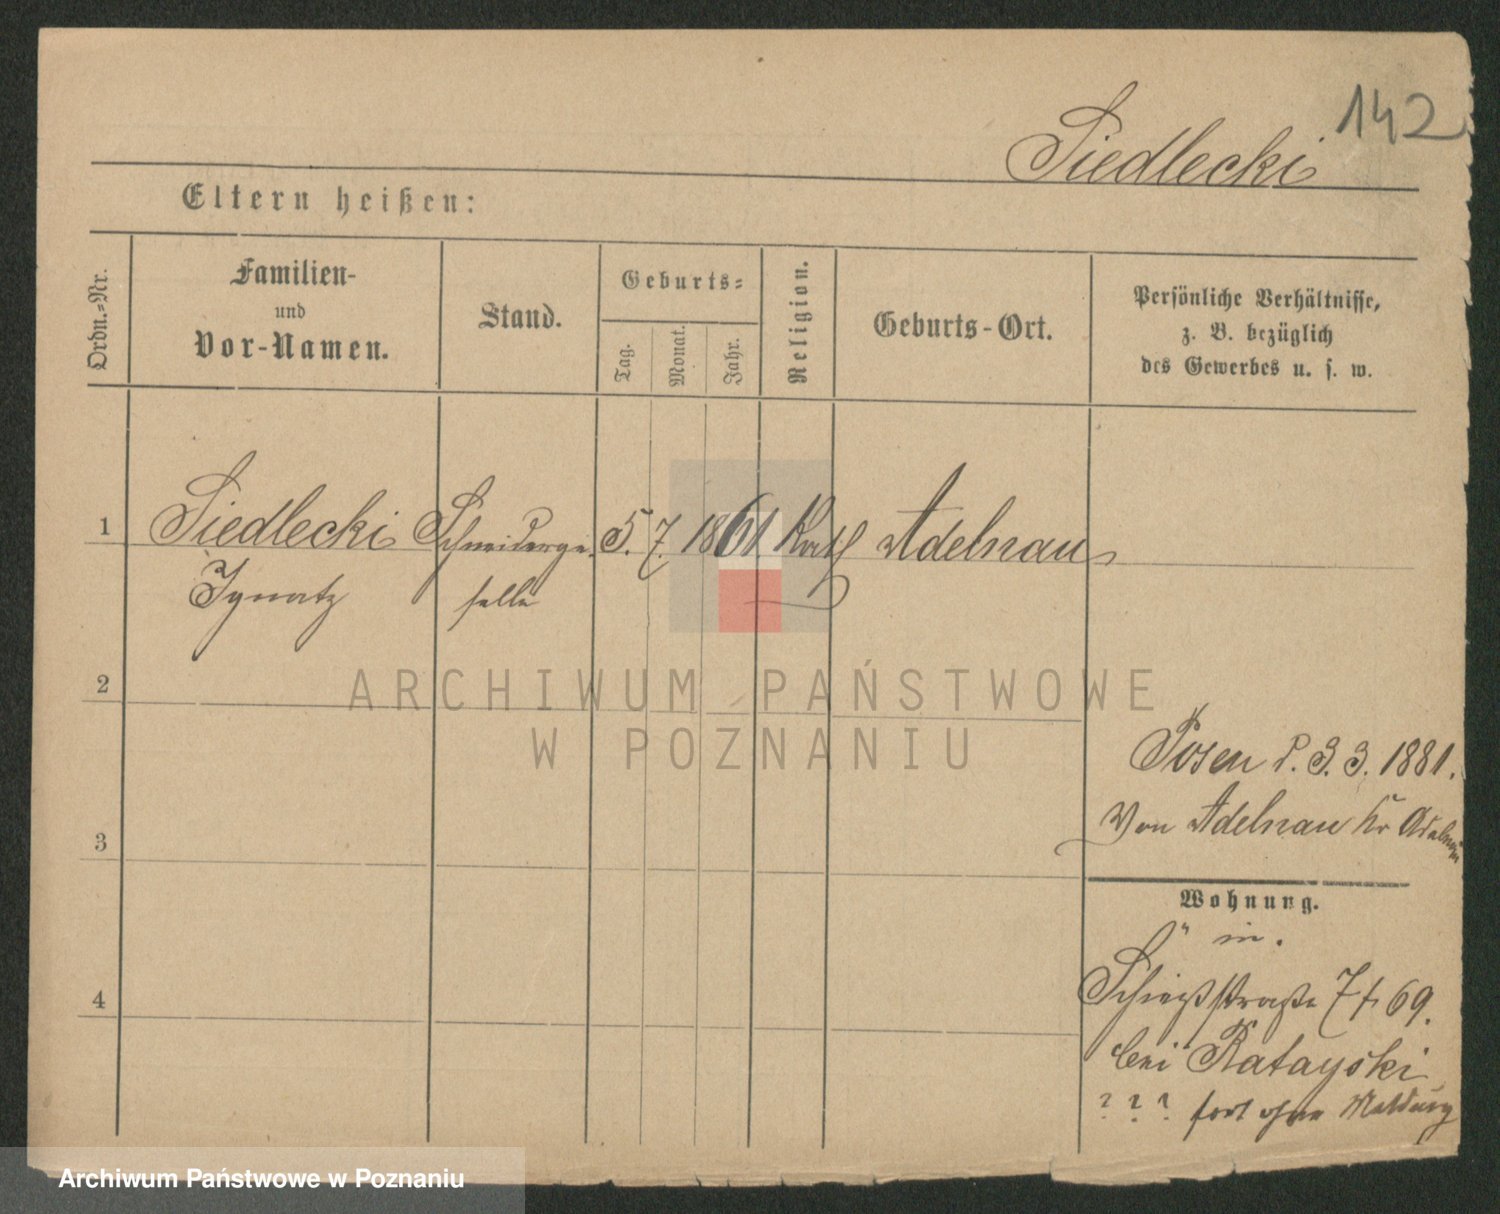 142
Siedlecki
Eltern heißen:
Ordn.-Nr.
Familien-
und
Vor-Namen.
Stand.
Geburts-
Tag.
Monat.
Jahr.
Religion.
Geburts-Ort.
Persönliche Verhältnisse,
z. B. bezüglich
des Gewerbes u. s. w.
1 Siedlecki Schneiderge- 5. 7. 1861. Kath Adelnau
Ignatz selle
2
ARCHIWUM PAŃSTWOWE
W POZNANIU
Posen d. 3. 3. 1881.
Von Adelnau Kr Adelnau
3
Wohnung.
in.
4
Schießstraße 7 69.
bei Ratayski
? ? ? fort ohne Meldung
Archiwum Państwowe w Poznaniu